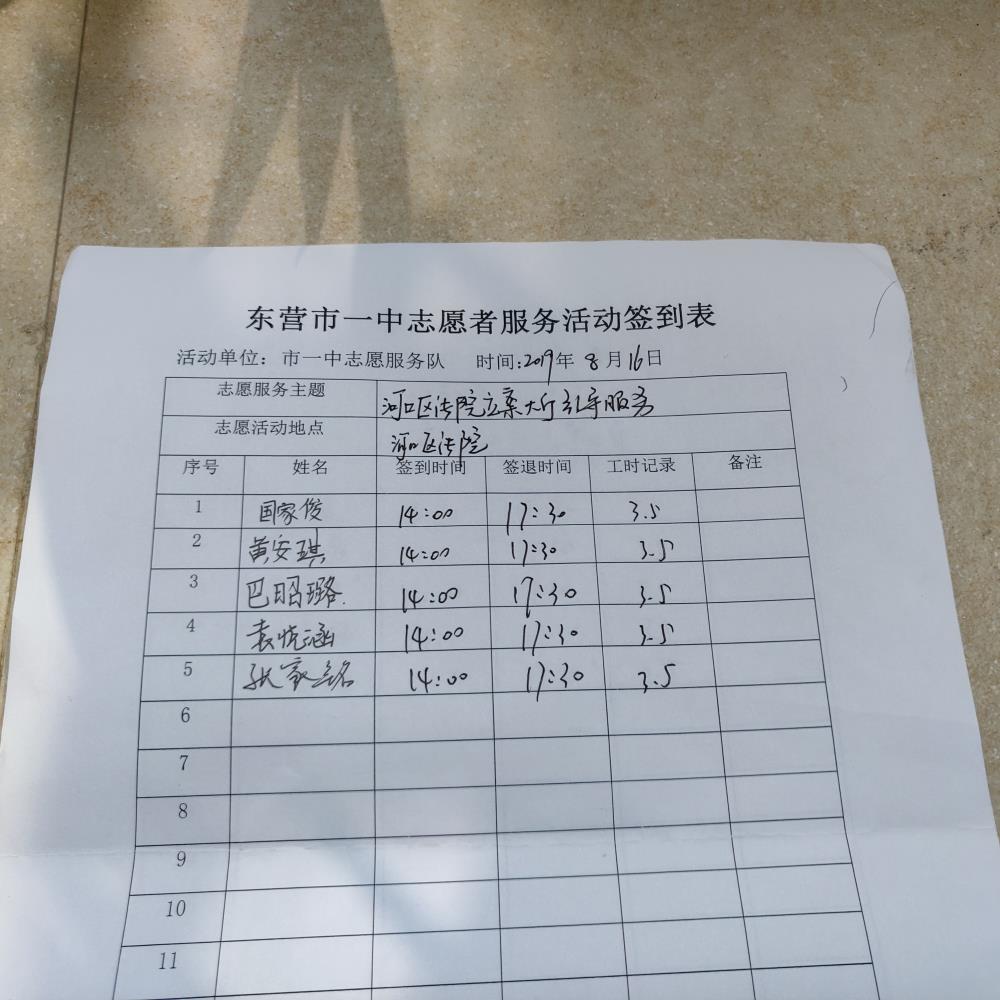 东营市一中志愿者服务活动签到表
活动单位：市一中志愿服务队 时间:2019年 8月16日
志愿服务主题 河口区法院立案大厅引导服务
志愿活动地点 河口区法院
序号 姓名 签到时间 签退时间 工时记录 备注
1 国家俊 14:00 17:30 3.5
2 黄安琪 14:00 17:30 3.5
3 巴昭璐 14:00 17:30 3.5
4 袁悦涵 14:00 17:30 3.5
5 张家铭 14:00 17:30 3.5
6
7
8
9
10
11